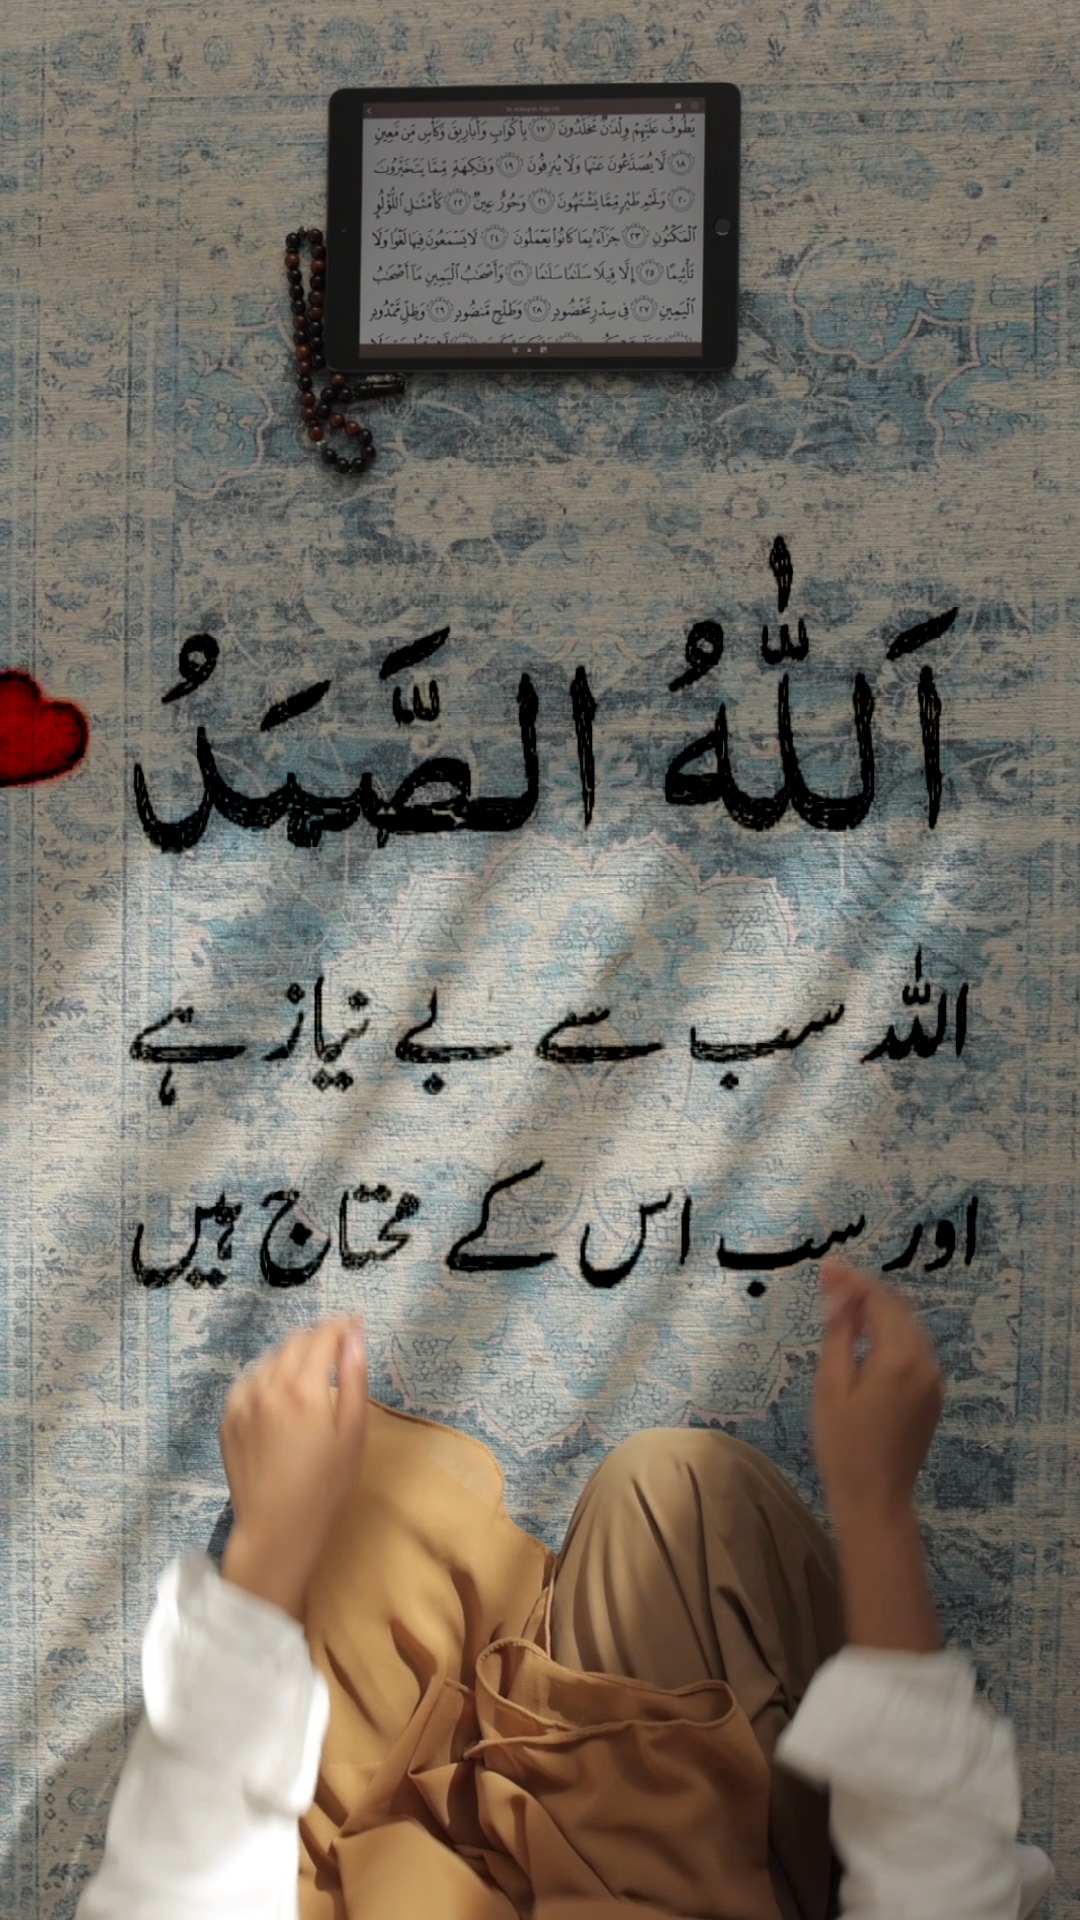 يَطُوفُ عَلَيْهِمْ وِلْدَٰنٌ مُّخَلَّدُونَ ١٧ بِأَكْوَابٍ وَأَبَارِيقَ وَكَأْسٍ مِّن مَّعِينٍ
١٨ لَّا يُصَدَّعُونَ عَنْهَا وَلَا يُنزِفُونَ ١٩ وَفَٰكِهَةٍ مِّمَّا يَتَخَيَّرُونَ
٢٠ وَلَحْمِ طَيْرٍ مِّمَّا يَشْتَهُونَ ٢١ وَحُورٌ عِينٌ ٢٢ كَأَمْثَٰلِ ٱللُّؤْلُؤِ
ٱلْمَكْنُونِ ٢٣ جَزَآءًۢ بِمَا كَانُوا۟ يَعْمَلُونَ ٢٤ لَا يَسْمَعُونَ فِيهَا لَغْوًا وَلَا
تَأْثِيمًا ٢٥ إِلَّا قِيلًا سَلَٰمًا سَلَٰمًا ٢٦ وَأَصْحَٰبُ ٱلْيَمِينِ مَآ أَصْحَٰبُ
ٱلْيَمِينِ ٢٧ فِى سِدْرٍ مَّخْضُودٍ ٢٨ وَطَلْحٍ مَّنضُودٍ ٢٩ وَظِلٍّ مَّمْدُودٍ
اَللّٰهُ الصَّمَدُ
اللہ سب سے بے نیاز ہے
اور سب اس کے محتاج ہیں